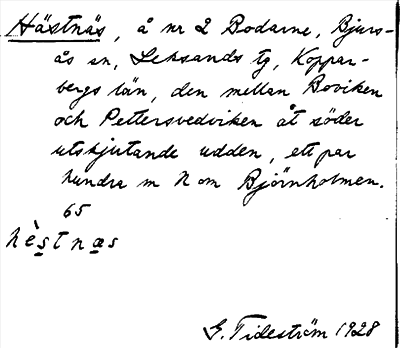 Hästnäs, å nr 2 Bodarne, Bjurs-
ås sn, Leksands tg, Koppar-
bergs län, den mellan Boviken
och Pettersvedviken åt söder
utskjutande udden, ett par
hundra m N om Björnholmen.
65
hèstnæs
G. Tideström 1928